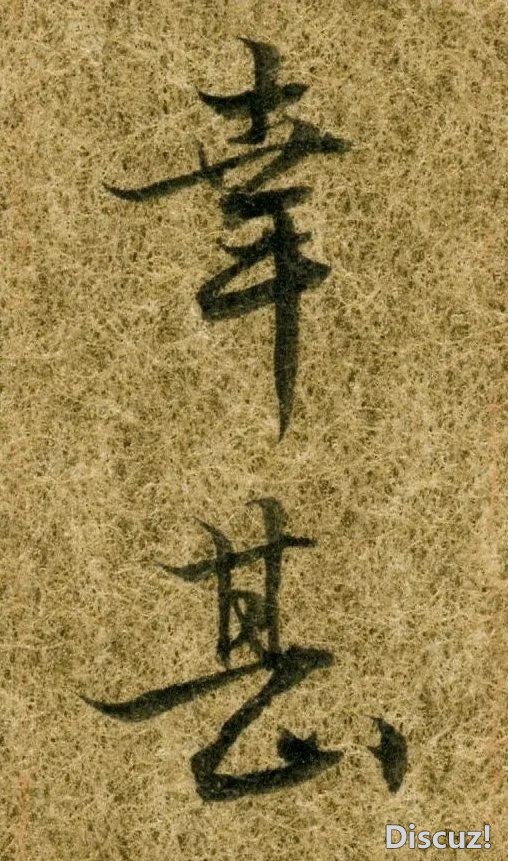 幸甚
Discuz!